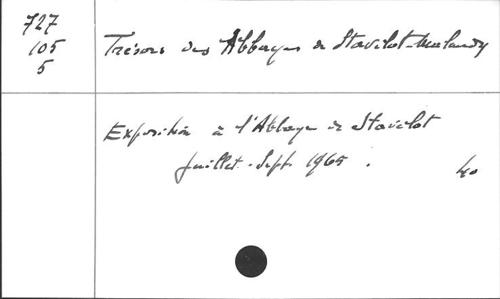 727
105
5
Trésors des Abbayes de Stavelot-Malmedy
Exposition à l'Abbaye de Stavelot
Juillet-Sept. 1965.
40